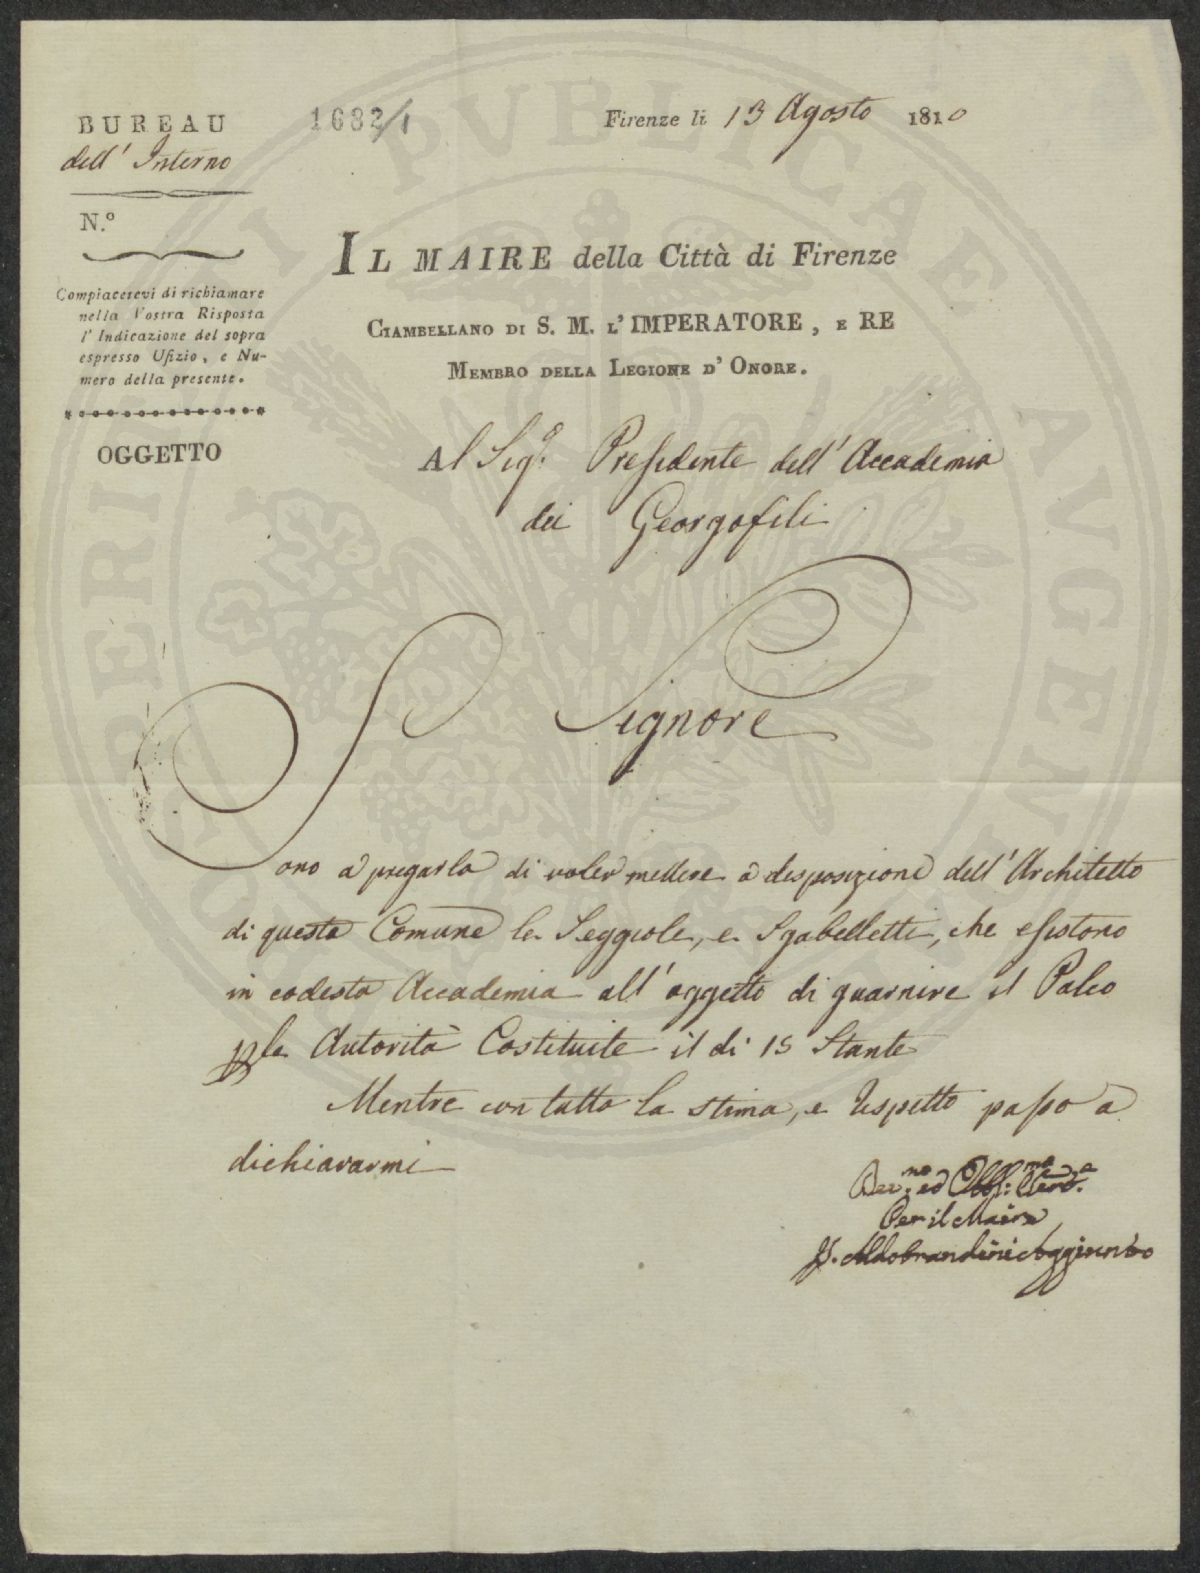 BUREAU
dell' Interno
N.º
Compiacerevi di richiamare
nella Vostra Risposta
l' Indicazione del sopra
espresso Ufizio, e Nu-
mero della presente.
OGGETTO
1682/1
Firenze li 13 Agosto 1810
IL MAIRE della Città di Firenze
CIAMBELLANO DI S. M. L'IMPERATORE, E RE
MEMBRO DELLA LEGIONE D' ONORE.
Al Sigr. Presidente dell' Accademia
dei Georgofili
Signore
Sono a pregarla di voler mettere a disposizione dell' Architetto
di questa Comune le Seggiole, e Sgabelletti, che esistono
in codesta Accademia all' oggetto di guarnire il Palco
p le Autorità Costituite il di 15 Stante
Mentre con tutta la stima, e rispetto passo a
dichiararmi
Dev.mo ed Obbl.mo
Per il Maire
Aldobrandini Aggiunto
I PUBLICAE AUGEN